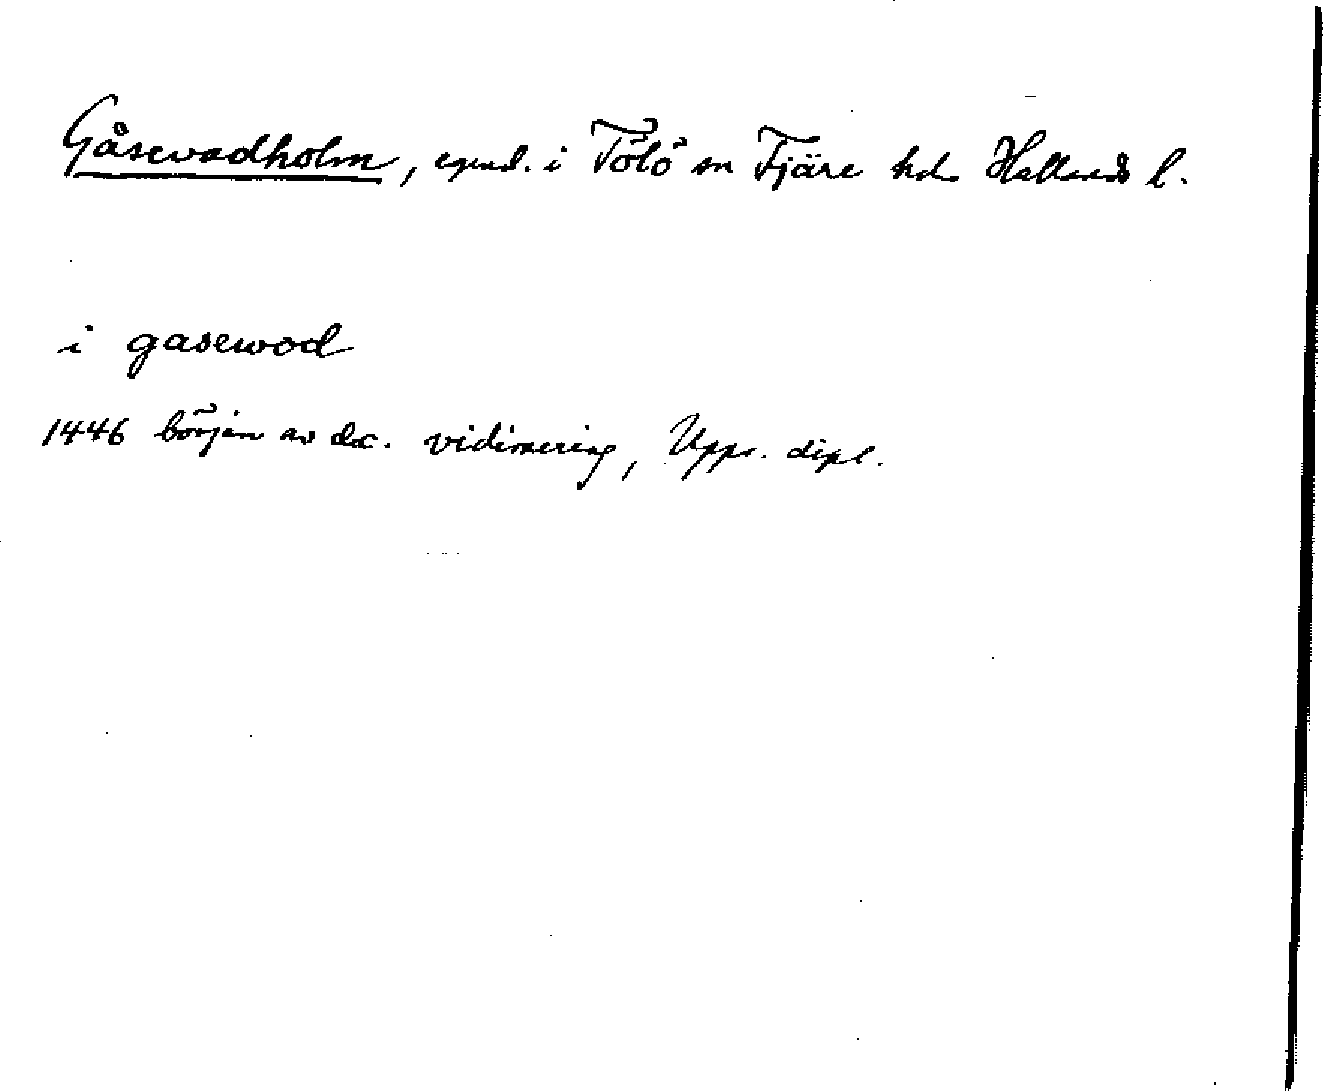 Gåsevadholm, egend. i Tölö sn Fjäre hd Hallands l.
i gasewod
1446 början av dec. vidimering, Upps. dipl.